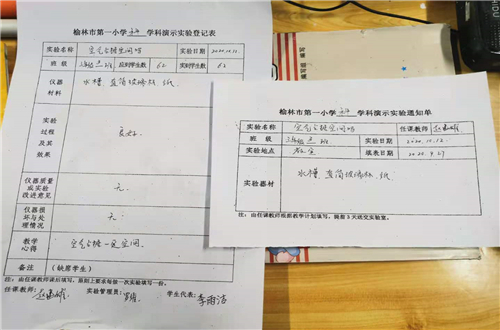 榆林市第一小学 科学 学科演示实验登记表
实验名称 空气占据空间吗 实验日期 2020.10.12.
班级 班 应到学生数 62 实到学生数 62
仪器材料 水槽 直筒玻璃杯 纸
实验过程及其效果 良好.
仪器质量或实验改进意见 无.
仪器损坏与处理情况 无.
教学心得 空气占据一定空间.
备注 (缺席学生)
注:由任课教师课后填写,原则上要求每做一次实验填写一份.
任课教师: 实验管理员: 学生代表: 李雨洁
榆林市第一小学 科学 学科演示实验通知单
实验名称 空气占据空间吗 任课教师
班级 班 实验日期 2020.10.12.
实验地点 教室 填表日期 2020.9.27
实验器材 水槽 直筒玻璃杯.纸
注:由任课教师根据教学计划填写,提前3天送交实验室.